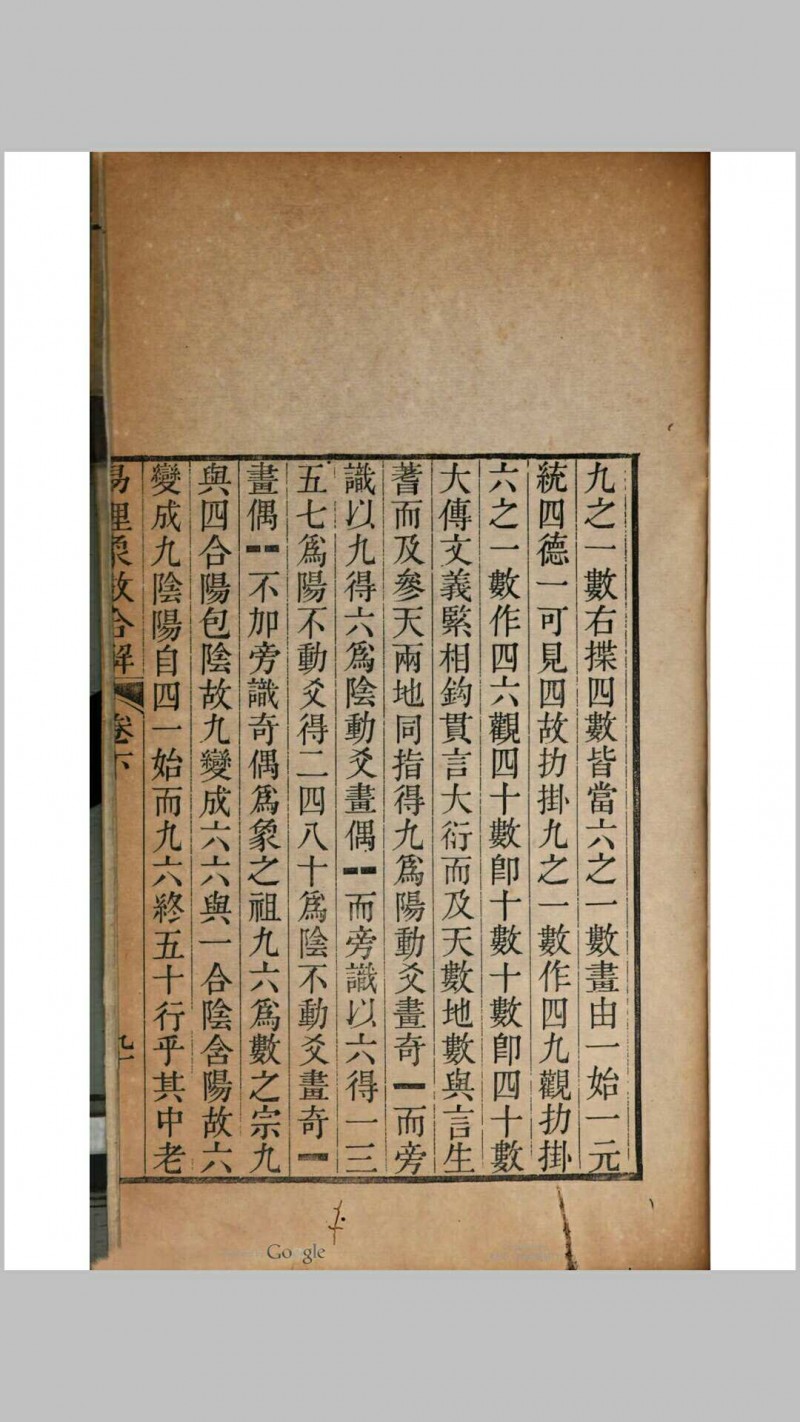 九之一數右揲四數皆當六之一數畫由一始一元
統四德一可見四故扐掛九之一數作四九觀扐掛
六之一數作四六觀四十數卽十數十數卽四十數
大傳文義緊相鈎貫言大衍而及天數地數與言生
蓍而及參天兩地同指得九爲陽動爻畫奇⚊而旁
識以九得六爲陰動爻畫偶⚋而旁識以六得一三
五七爲陽不動爻得二四八十爲陰不動爻畫奇⚊
畫偶⚋不加旁識奇偶爲象之祖九六爲數之宗九
與四合陽包陰故九變成六六與一合陰含陽故六
變成九陰陽自四一始而九六終五十行乎其中老
易理象數合解 卷下
Google